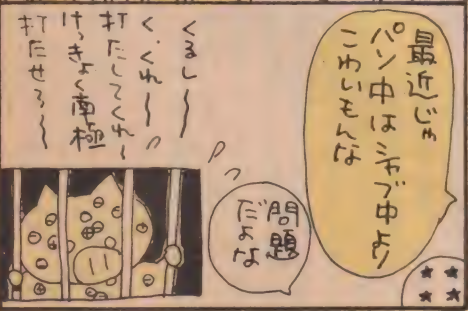 最近じゃ
パソ中はシャブ中より
こわいもんな
問題
だよな
くるし〜〜
く、くれ〜〜
打たしてくれ〜
けっきょく南極
打たせろ〜〜